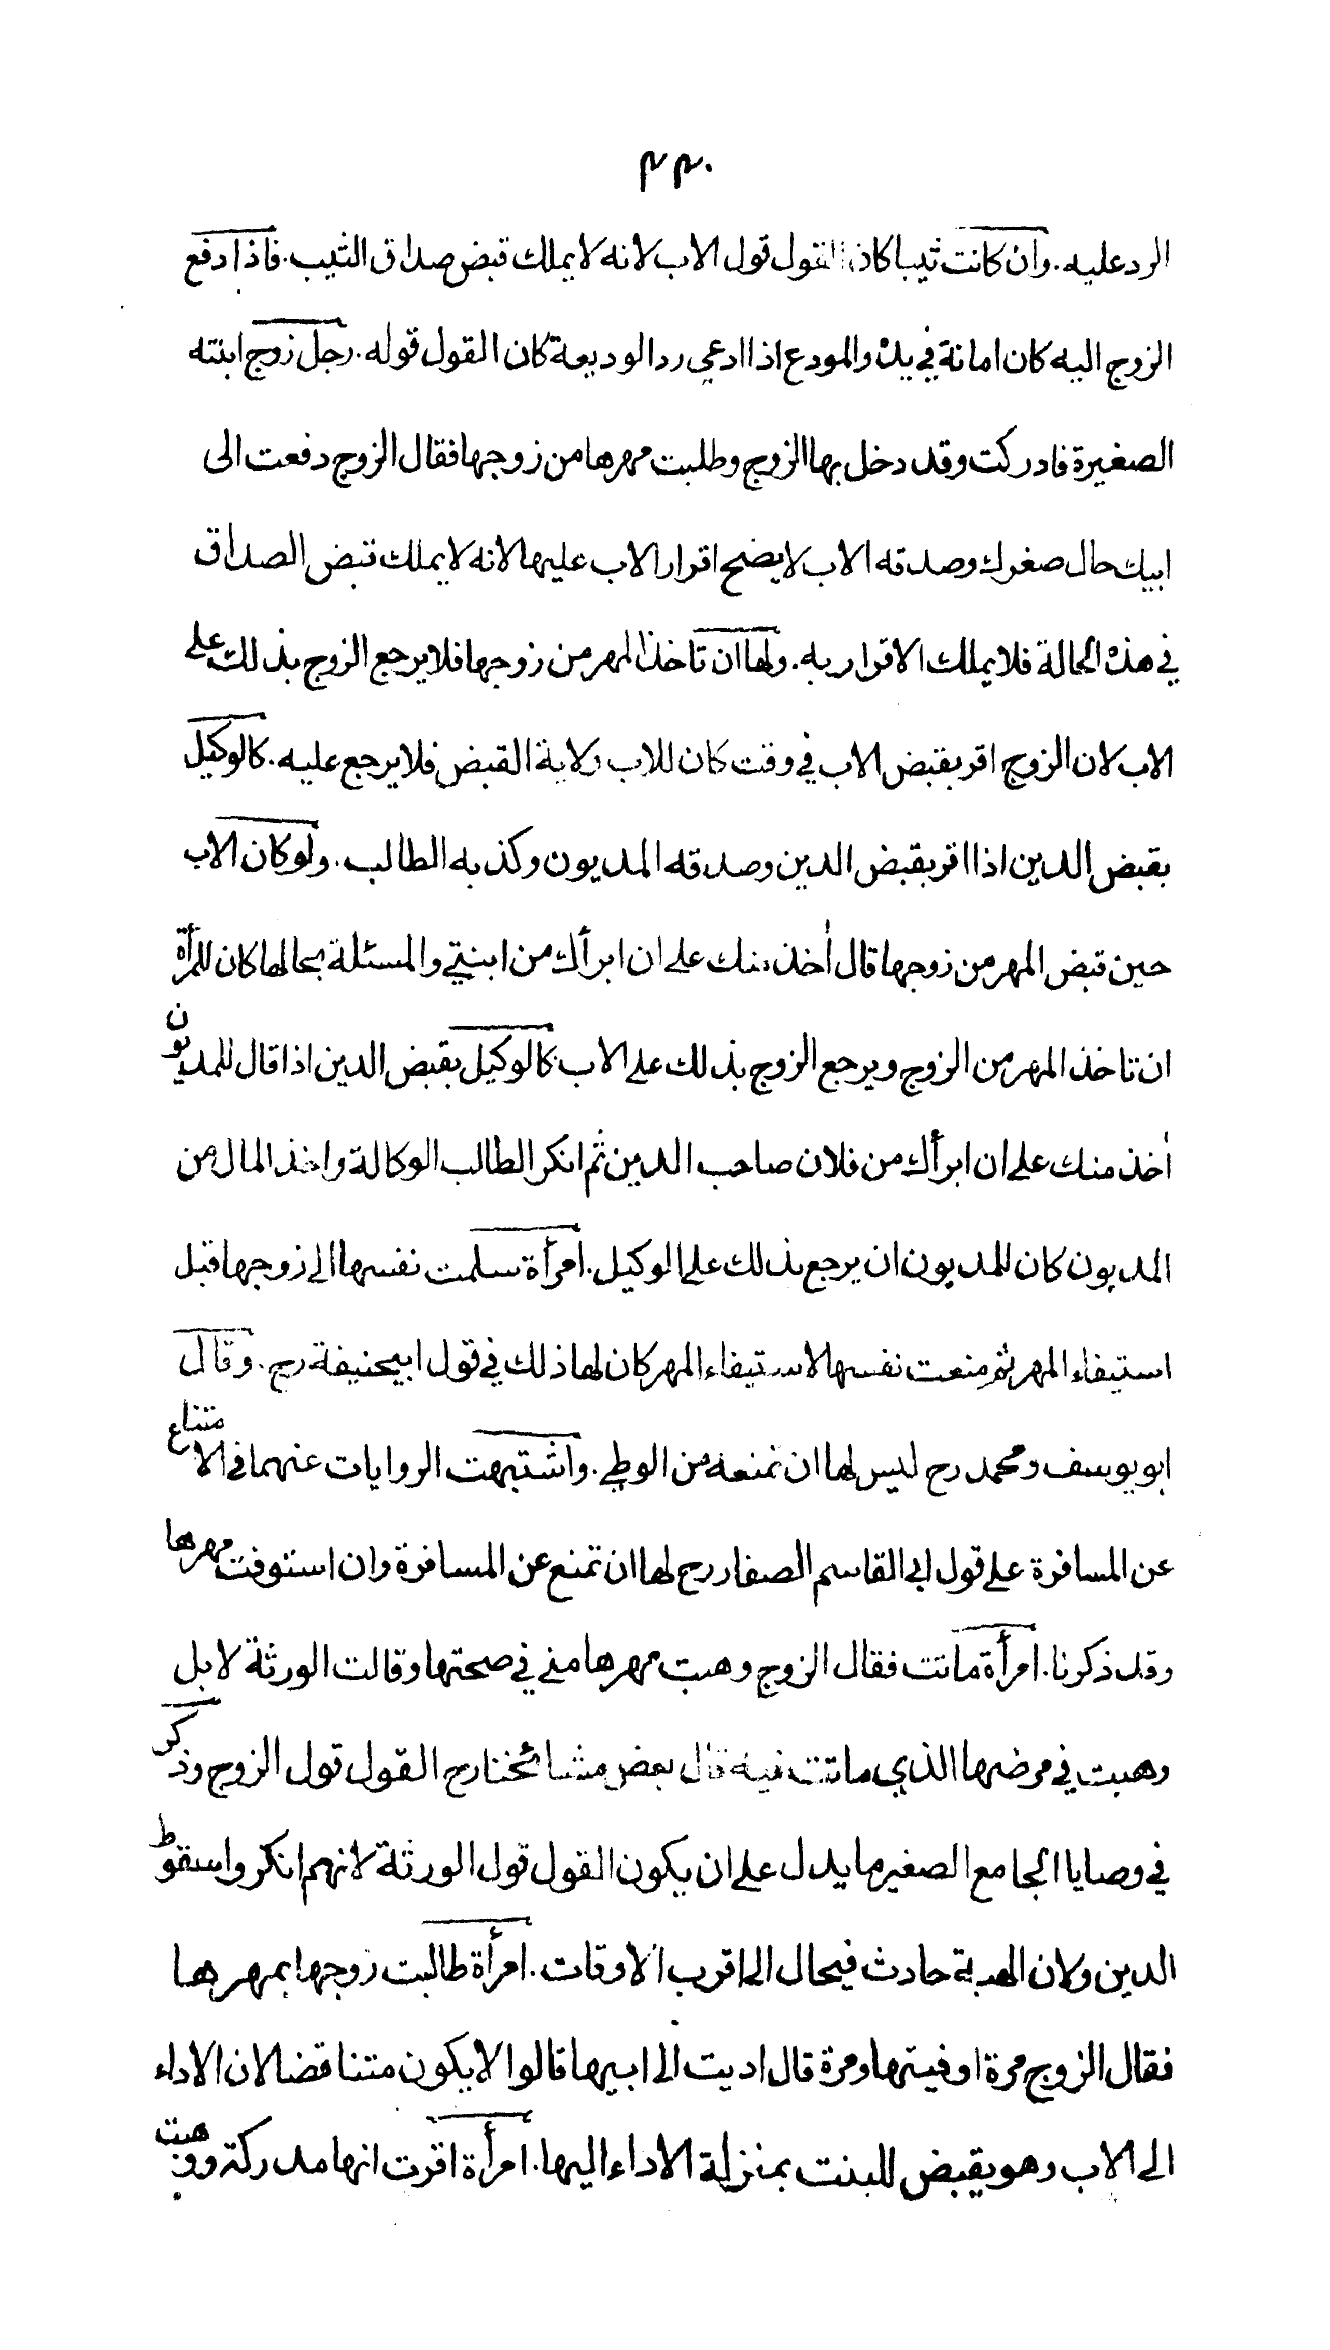 ٤٤٠
الرد عليه. وان كانت ثيبا كان القول قول الاب لانه لا يملك قبض صداق الثيب. فاذا دفع
الزوج اليه كان امانة في يده والمودع اذا ادعي رد الوديعة كان القول قوله. رجل زوج ابنته
الصغيرة فادركت وقد دخل بها الزوج وطلبت مهرها من زوجها فقال الزوج دفعت الى
ابيك حال صغرك وصدقه الاب لا يصح اقرار الاب عليها لانه لا يملك قبض الصداق
في هذه الحالة فلا يملك الاقرار به. ولها ان تاخذ المهر من زوجها فلا يرجع الزوج بذلك على
الاب لان الزوج اقر بقبض الاب في وقت كان للاب ولاية القبض فلا يرجع عليه. كالوكيل
بقبض الدين اذا اقر بقبض الدين وصدقه المديون وكذبه الطالب. ولو كان الاب
حين قبض المهر من زوجها قال أخذ منك على ان ابرأك من ابنتي والمسئلة بحالها كان للمرأة
ان تاخذ المهر من الزوج ويرجع الزوج بذلك على الاب كالوكيل بقبض الدين اذا قال للمديون
أخذ منك على ان ابرأك من فلان صاحب الدين ثم انكر الطالب الوكالة واخذ المال من
المديون كان للمديون ان يرجع بذلك على الوكيل. امرأة سلمت نفسها الى زوجها قبل
استيفاء المهر ثم منعت نفسها لاستيفاء المهر كان لها ذلك في قول ابيحنيفة رح. وقال
ابو يوسف ومحمد رح ليس لها ان تمنعه من الوطي. واشتبهت الروايات عنهما في الامتناع
عن المسافرة على قول ابي القاسم الصفار رح لها ان تمنع عن المسافرة وان استوفت مهرها
وقد ذكرنا. امرأة ماتت فقال الزوج وهبت مهرها مني في صحتها وقالت الورثة لا بل
وهبت في مرضها الذي ماتت فيه قال بعض مشائخنا رح القول قول الزوج وذكر
في وصايا الجامع الصغير ما يدل على ان يكون القول قول الورثة لانهم انكروا سقوط
الدين ولان الهبة حادث فيحال الى اقرب الاوقات. امرأة طالبت زوجها بمهرها
فقال الزوج مرة اوفيتها ومرة قال اديت الى ابيها قالوا لا يكون متناقضا لان الاداء
الى الاب وهو يقبض للبنت بمنزلة الاداء اليها. امرأة اقرت انها مدركة ووهبت